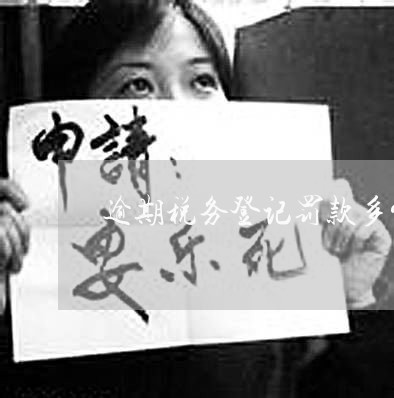 申請：
逾期税务登记罚款多
安乐死